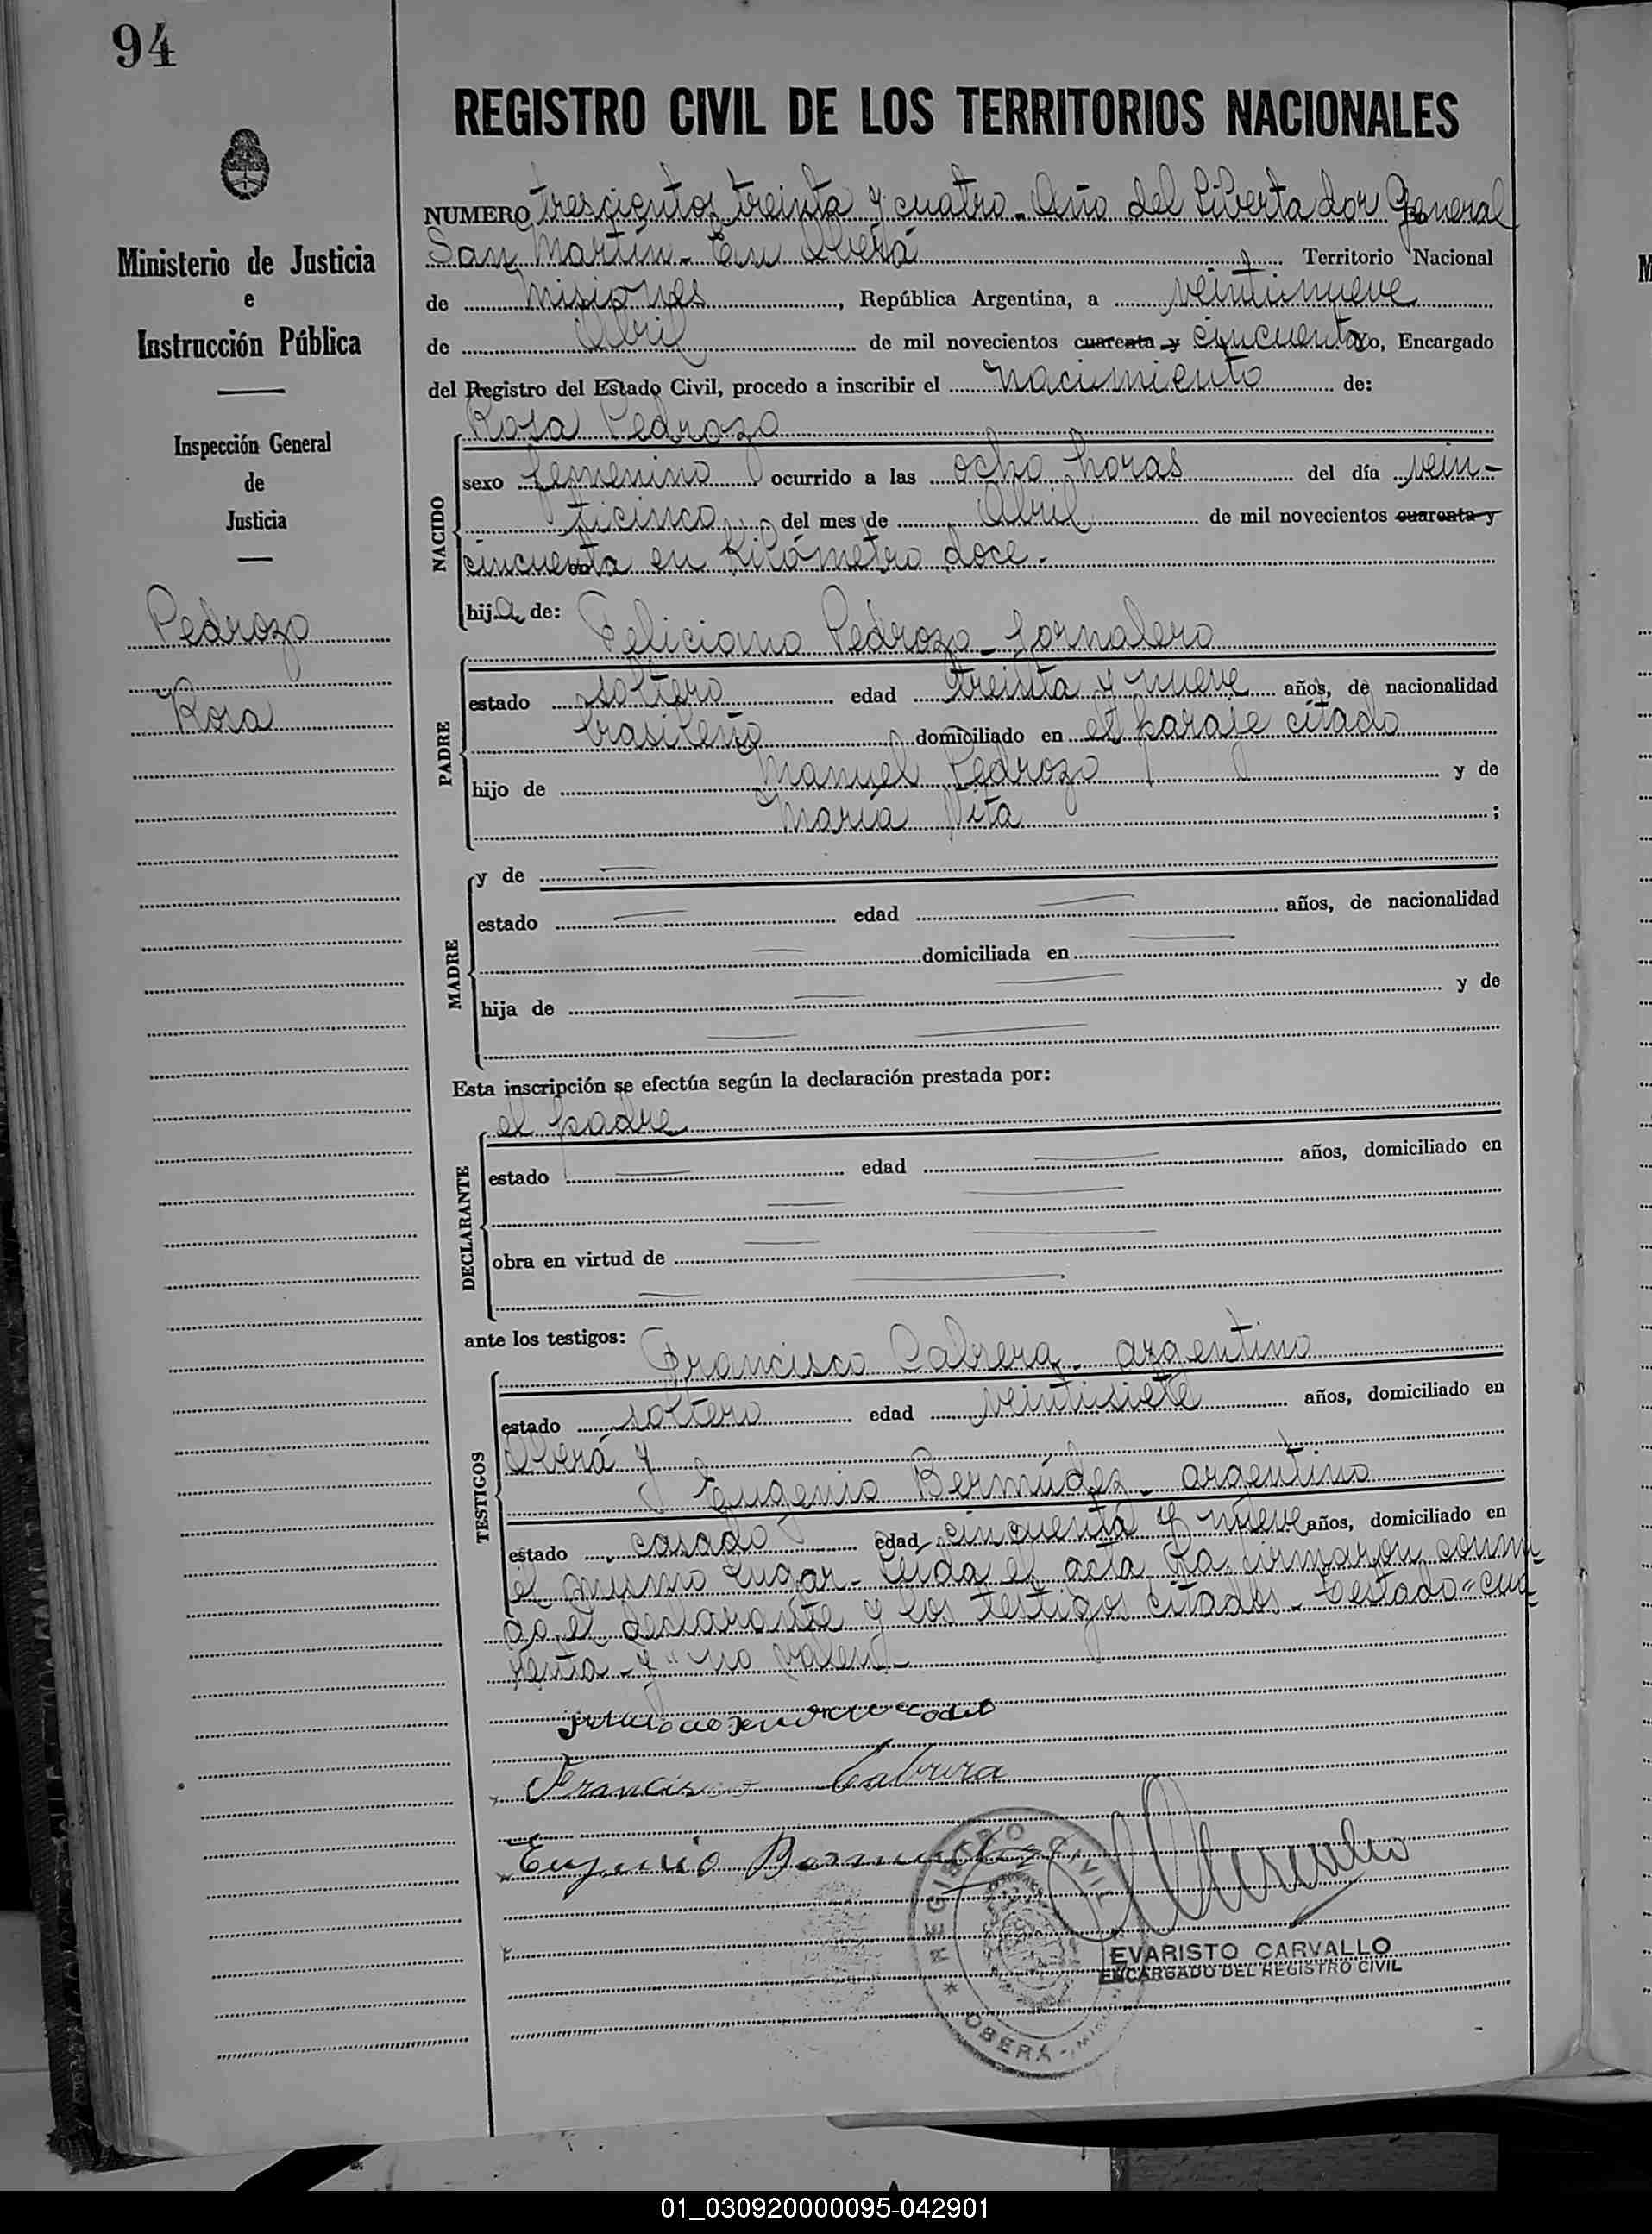 94
REGISTRO CIVIL DE LOS TERRITORIOS NACIONALES
Ministerio de Justicia
e
Instrucción Pública
Inspección General
de
Justicia
Pedrozo
Rosa
NUMERO trescientos treinta y cuatro - Año del Libertador General
San Martín - En Oberá Territorio Nacional
de Misiones, República Argentina, a veintinueve
de Abril de mil novecientos cuarenta y cincuenta yo, Encargado
del Registro del Estado Civil, procedo a inscribir el nacimiento de:
Rosa Pedrozo
NACIDO
sexo femenino ocurrido a las ocho horas del día vein-
ticinco del mes de Abril de mil novecientos cuarenta y
cincuenta en Kilómetro doce.
hija de:
Feliciano Pedrozo - Jornalero
PADRE
estado soltero edad treinta y nueve años, de nacionalidad
brasileño domiciliado en el paraje citado
hijo de Manuel Pedrozo y de
María Vita ;
MADRE
y de
estado edad años, de nacionalidad
domiciliada en
hija de y de
Esta inscripción se efectúa según la declaración prestada por:
el padre
DECLARANTE
estado edad años, domiciliado en
obra en virtud de
ante los testigos:
Francisco Cabrera - argentino
TESTIGOS
estado soltero edad veintisiete años, domiciliado en
Oberá y
Eugenio Bermúdez - argentino
estado casado edad cincuenta y nueve años, domiciliado en
el mismo lugar - Leída el acta la firmaron conmi
go el declarante y los testigos citados - Testado "cua
renta - y" no valen -
Francisco Cabrera
Eugenio Bermudez
REGISTRO CIVIL
* OBERÁ - MISIONES
EVARISTO CARVALLO
ENCARGADO DEL REGISTRO CIVIL
01_030920000095-042901